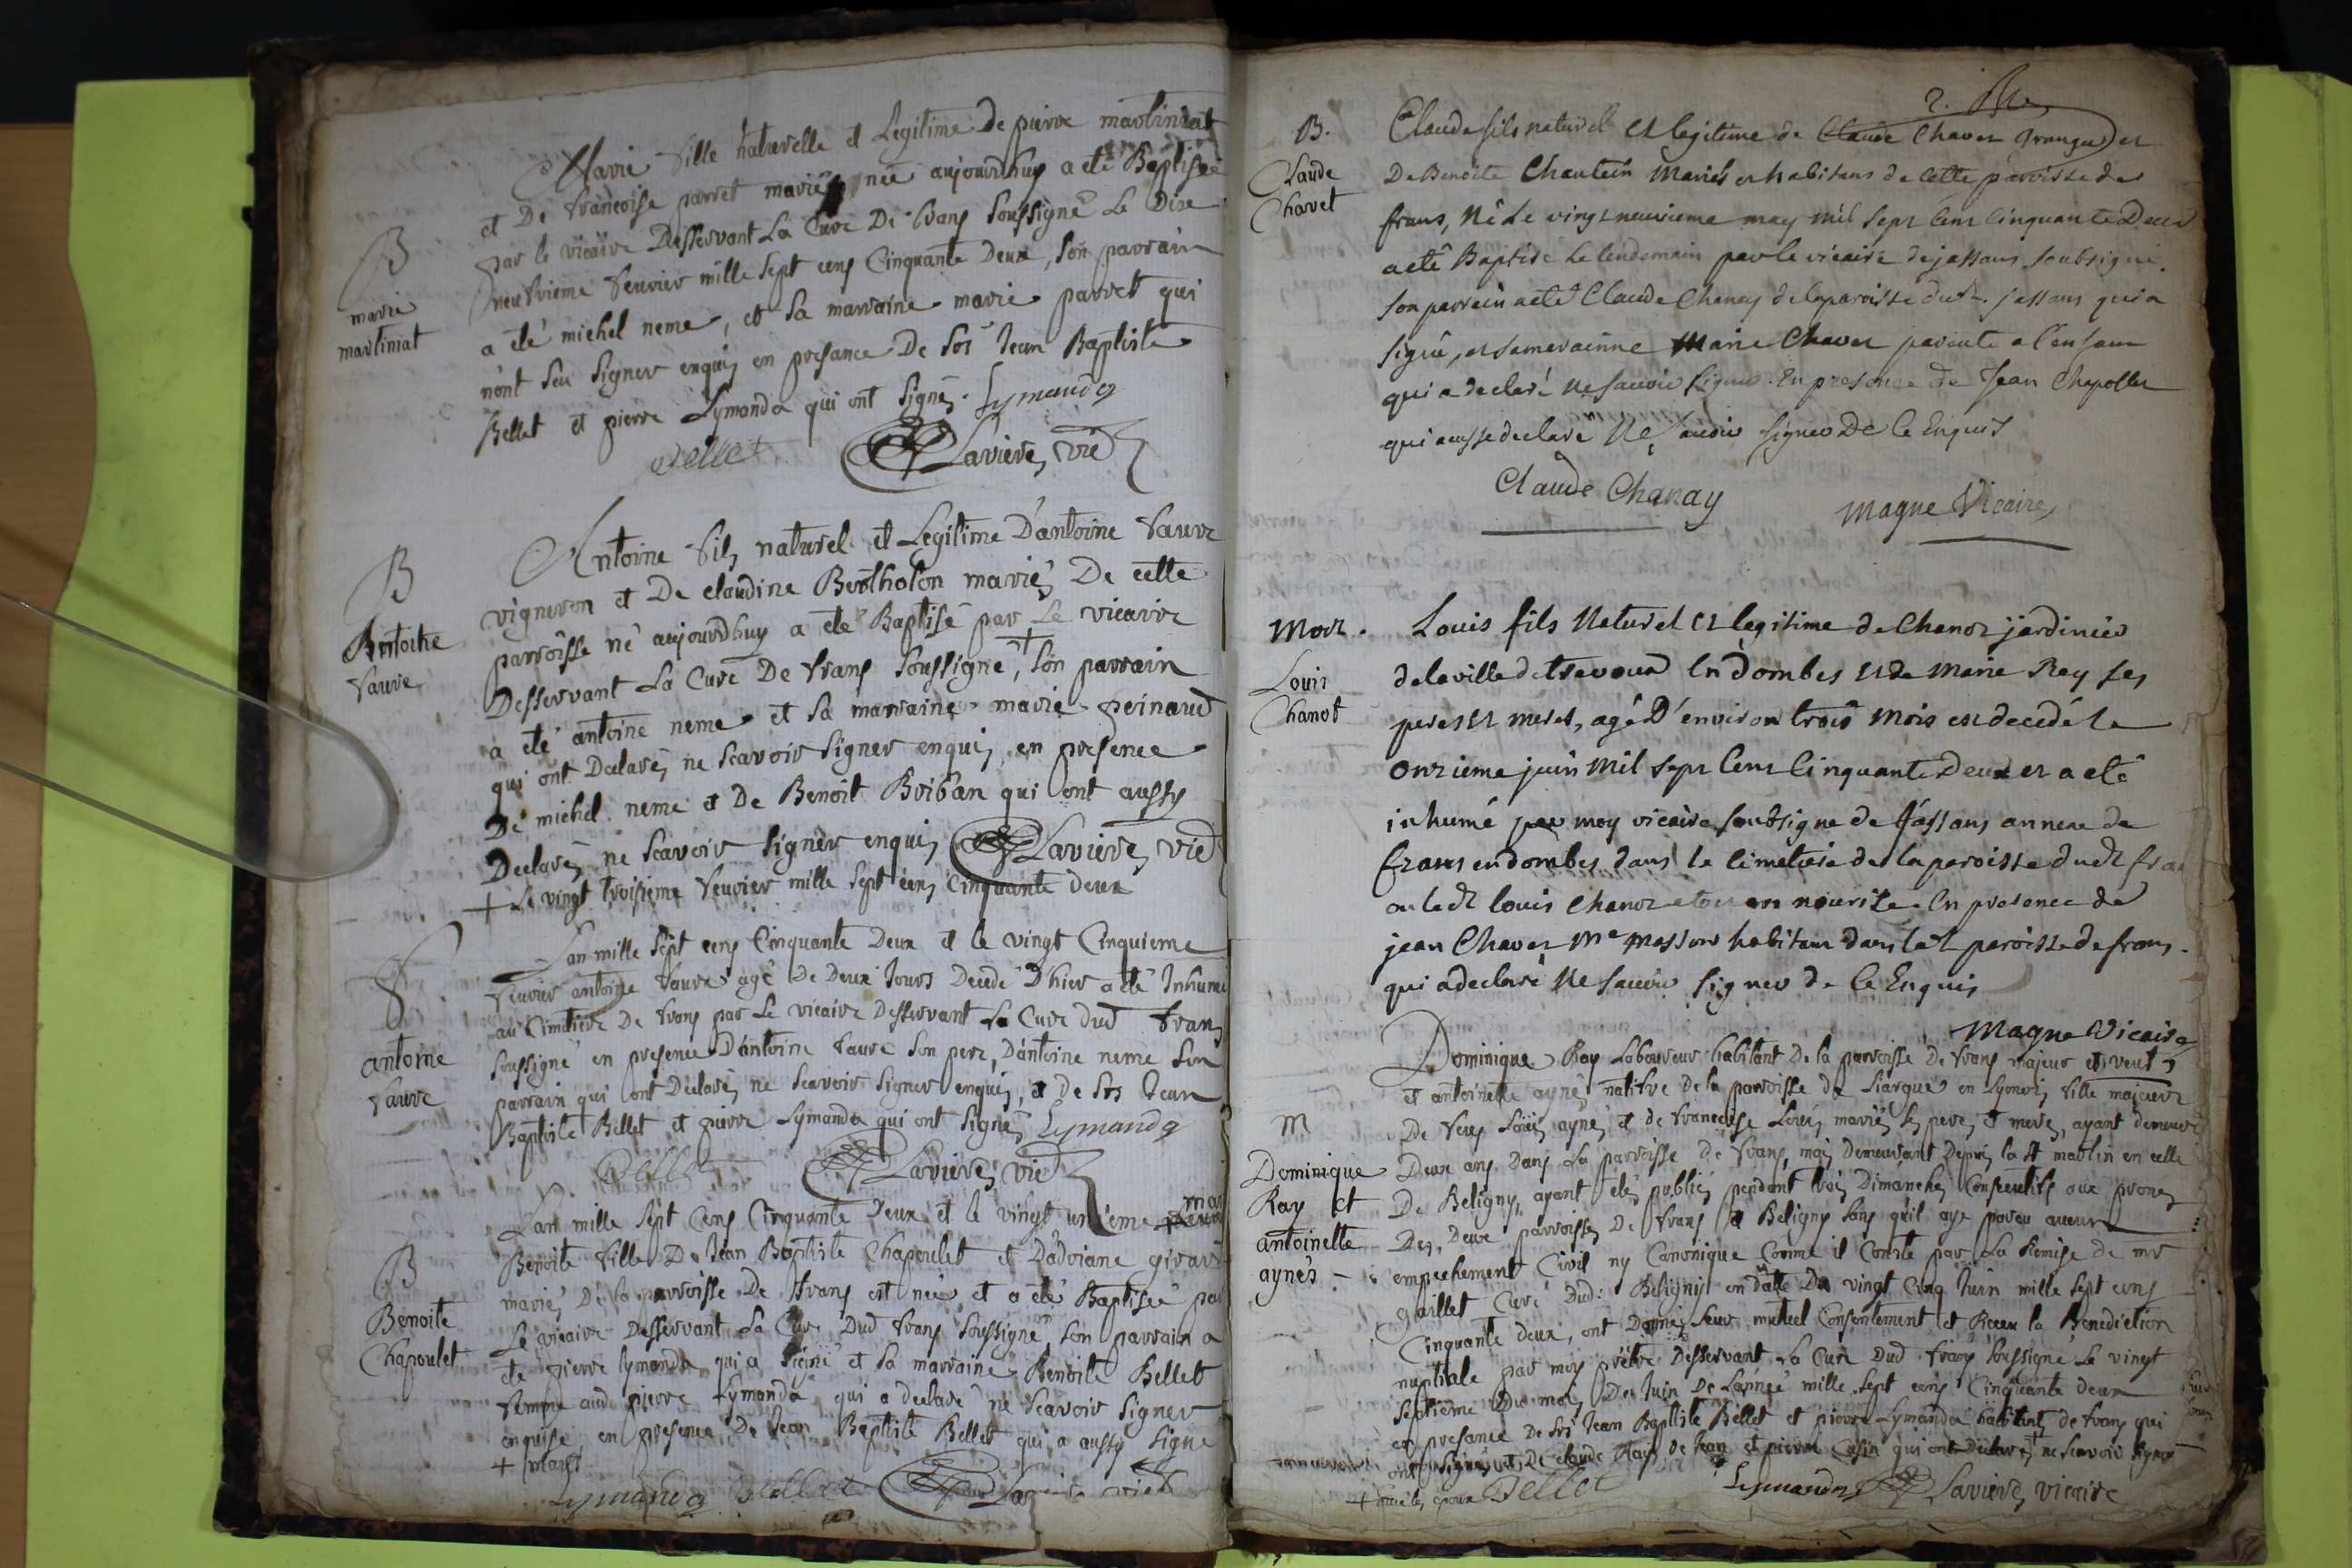 B
marie
martiniat
Marie fille naturelle et Legitime De pierre martiniat
et De francoise parret mariés née aujourdhuy a eté Baptisée
par le vicaire Desservant La Cure De frans soussigné Le Dix
neufvieme fevrier mille sept cens Cinquante Deux, son parrain
a eté michel neme, et sa marraine marie parret qui
n'ont seu signer enquis en presance De Srs Jean Baptiste
Bellet et pierre Lymanda qui ont signés. Lymanda
Bellet Laviere, vic
B
Antoine
faure
Antoine fils naturel et Legitime D'antoine faure
vigneron et De claudine Bertholon mariés De cette
parroisse né aujourdhuy a eté Baptisé par Le vicaire
Desservant La Cure De frans soussigné, + son parrain
a eté antoine neme et sa marraine marie peinaud
qui ont Declarés ne scavoir signer enquis, en presence
De michel neme et De Benoit Briban qui ont aussy
Declarés ne scavoir signer enquis Laviere, vic
+ Le vingt troisieme fevrier mille sept cens cinquante deux
S
antoine
faure
L'an mille sept cens Cinquante Deux et le vingt Cinquieme
fevrier antoine faure agé De Deux Jours Decedé D'hier a eté Inhumé
au Cimetiere De frans par Le vicaire Desservant La Cure dud frans
soussigné en presence D'antoine faure son pere, D'antoine neme son
parrain qui ont Declarés ne scavoir signer enquis, et de Srs Jean
Baptiste Bellet et pierre Lymanda qui ont signés Lymanda
Bellet Laviere, vic
B
Benoite
Chapoulet
L'an mille sept Cens Cinquante Deux et le vingt unieme mars
Benoite fille De Jean Baptiste Chapoulet et D'adriane girard
mariés De la parroisse De frans est née et a eté Baptisée par
Le vicaire Desservant La Cure Dud frans soussigné son parrain a
eté pierre lymanda qui a signé et sa marraine Benoite Bellet
femme aud pierre Lymanda qui a declaré ne scavoir signer
enquise en presence De Jean Baptiste Bellet qui a aussy signé
+ mars
Lymanda Bellet Laviere vic
2.
B.
Claude
Chavet
Claude fils naturel et legitime de Claude Chavet granger et
De Benoite Chantein Mariés et habitans de cette parroisse de
frans, Né Le vingt neuvieme may mil sept Cent Cinquante Deux
a eté Baptisé Le lendemain par le vicaire de jassans soubsigné.
Son parrein a eté Claude Chanay de la paroisse dudt. jassans qui a
signé, et sa marainne Marie Chavet parente a l'enfant
qui a declaré Ne sauoir signer. En presence de Jean Chapollet
qui aussi declaré Ne sauoir signer De Ce Enquis
Claude Chanay Magne Vicaire
Mort.
Louis
Chanot
Louis fils Naturel et legitime de Chanot jardinier
de la ville de trevoux En Dombes et de Marie Rey ses
peres et meres, agé D'environ trois Mois est decedé le
onzieme juin Mil sept Cent Cinquante Deux et a eté
inhumé par moy vicaire soubsigné de Jassans annexe de
frans en dombes dans le cimetiere de la paroisse dudt
ou ledt louis Chanot etoit en nourise. En presence de
jean Chavet Me Masson habitant dans ladt paroisse de frans.
qui a declaré Ne sauoir signer de Ce Enquis
Magne Vicaire
M
Dominique
Ray et
antoinette
aynés
Dominique Ray Laboureur habitant De la parroisse De frans majeur et veuf,
et antoinette aynés native De la parroisse de Liargue en Lyonois fille majeure
De feus Loüis aynés et de francoise Lores mariés ses pere et mere, ayant demeuré
Deux ans Dans La parroisse De frans, mais Demeurant Depuis la St martin en celle
De Beligny, ayant eté publiés pendant trois Dimanches Consecutifs aux prones
Des Deux parroisses De frans et Beligny sans qu'il aye paru aucun
empechement Civil ny Canonique Comme il Conste par La Remise de mr
gaillet Curé Dud: Beligny en datte Du vingt Cinq Juin mille sept cens
Cinquante deux, ont Donnés Leur mutuel Consentement et Receu la Benediction
nuptiale par moy prêtre Desservant La Cure Dud frans soussigné Le vingt
septieme Du mois De Juin De L'année mille sept cens Cinquante deux
en presance de Srs Jean Baptiste Bellet et pierre Lymanda habitants de frans qui
ont signés, et De claude Ray De Jean et pierre Cusin qui ont Declarés ne scavoir signer
Bellet Lymanda Laviere, vicaire